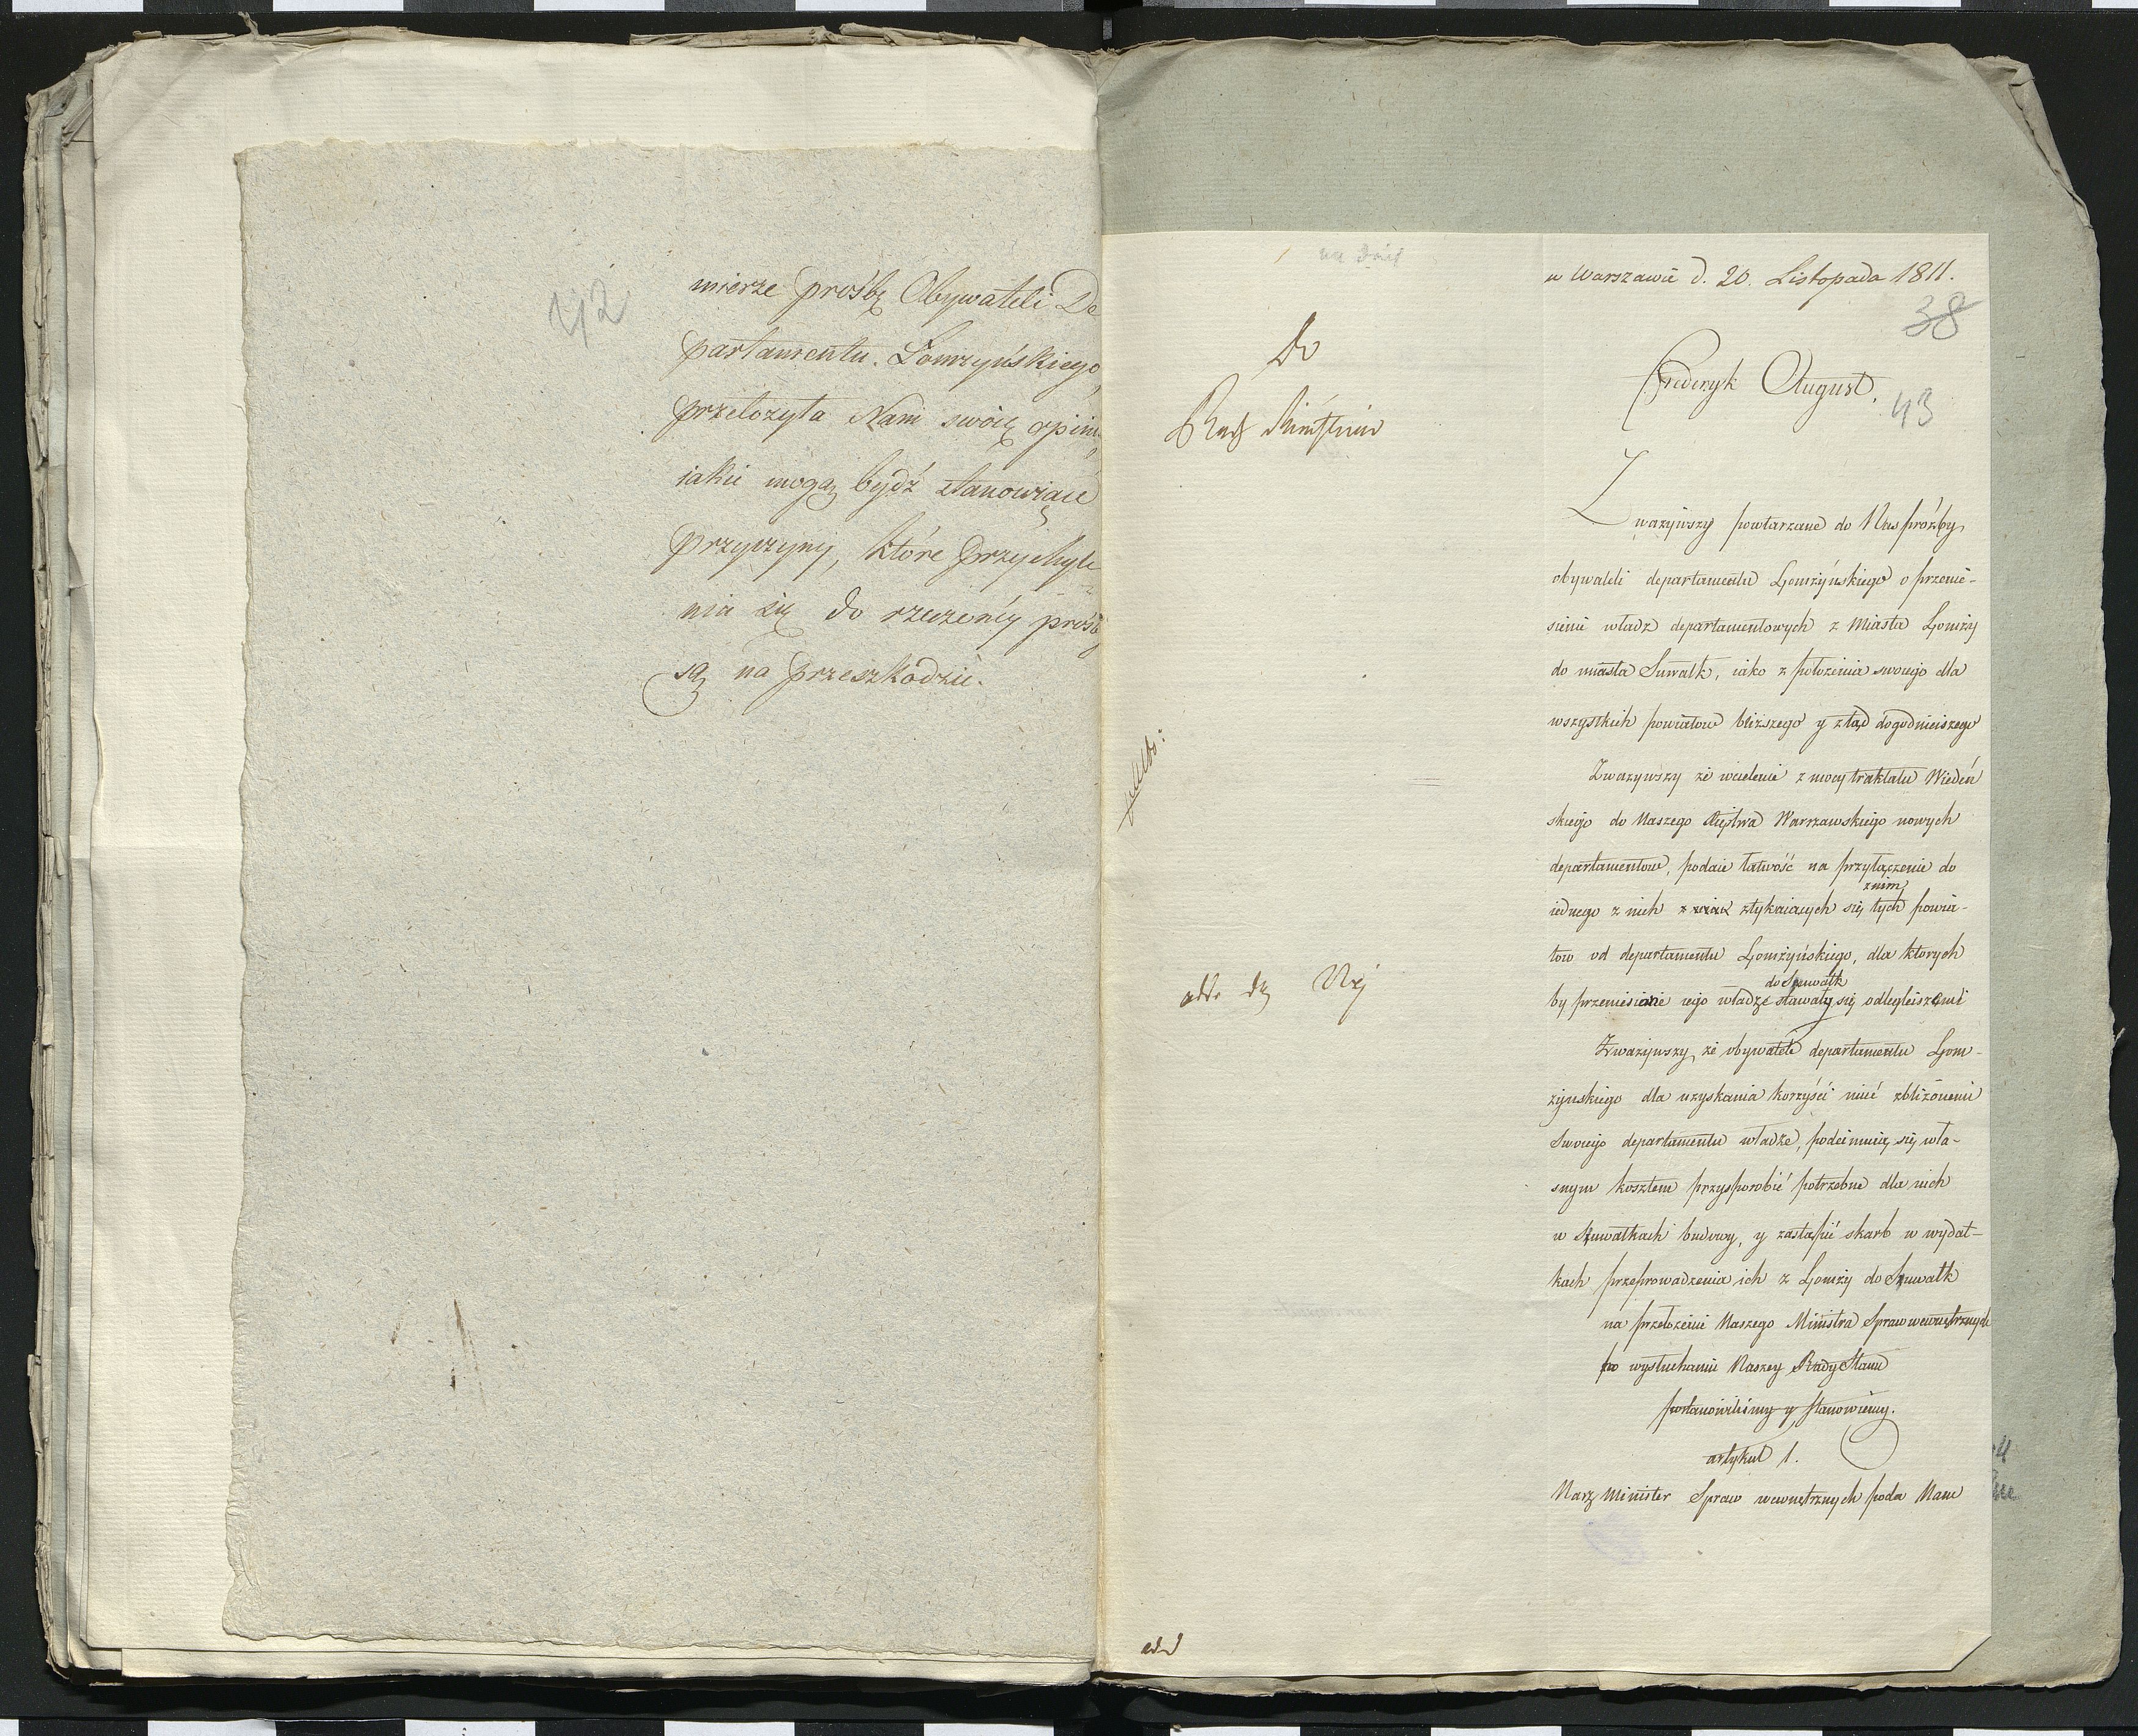 42
mierze prośbę Obywateli De
partamentu Łomżyńskiego,
przełożyła Nam swoię opinią,
iakie mogą bydź stanowiące
przyczyny, które przychyle
nia się do rzeczoney prośby
są na przeszkodzie.
w Warszawie d. 20. Listopada 1811.
38
Do
Frederyk August.
43
Rady Ministrów
Zważywszy powtarzane do Nas prózby
obywateli departamentu Łomżyńskiego o przenie-
sienie władz departamentowych z Miasta Łomży
do miasta Suwałk, iako z położenia swoiego dla
wszystkich powiatow bliższego y ztąd dogodnieiszego
Zważywszy że wcielenie z mocy traktatu Wiedeń
skiego do Naszego Xięstwa Warszawskiego nowych
departamentow, podaie łatwość na przyłączenie do
z nim
iednego z nich stykaiących się tych powia-
tow od departamentu Łomżyńskiego, dla ktorych
do Suwałk
by przeniesione iego władze stawały się odlegleiszemi
Zważywszy, że obywatele departamentu Łom-
żyńskiego dla uzyskania korzyści mieć zbliżonemi
Swoiego departamentu władze, podeimuią się wła-
snym kosztem przysposobić potrzebne dla nich
w Suwałkach budowy, y zastąpić skarb w wydat-
kach przeprowadzenia ich z Łomży do Suwałk
na przełożenie Naszego Ministra Spraw wewnętrznych
po wysłuchaniu Naszey Rady Stanu
postanowiliśmy y stanowiemy.
artykuł 1.
Nasz Minister Spraw wewnętrznych poda Nam